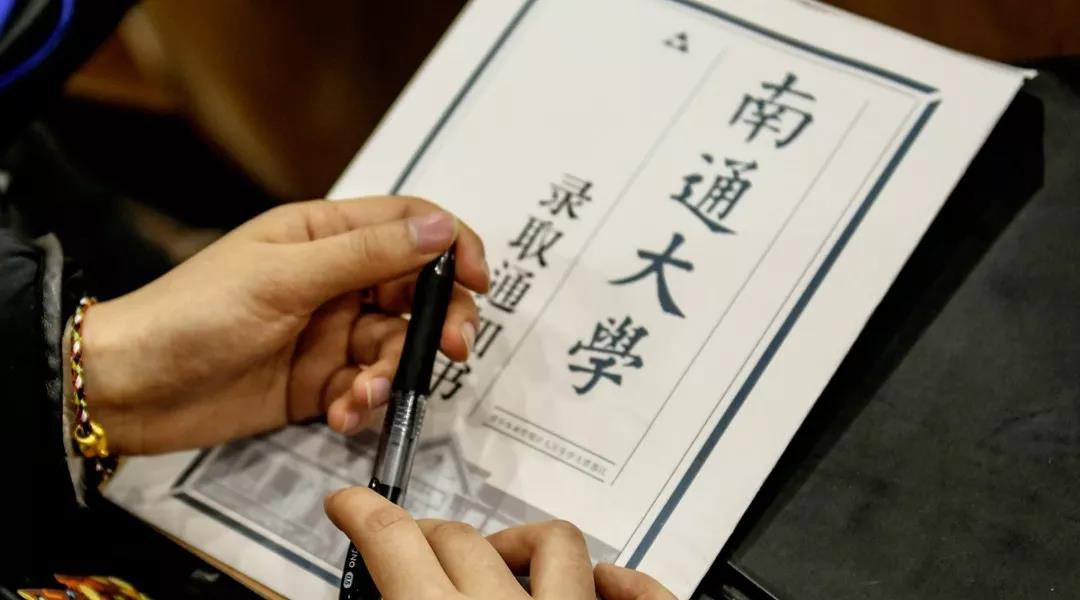 南通大學
录取通知书